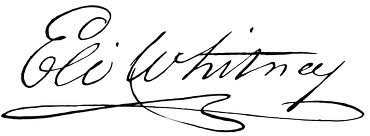 Eli Whitney